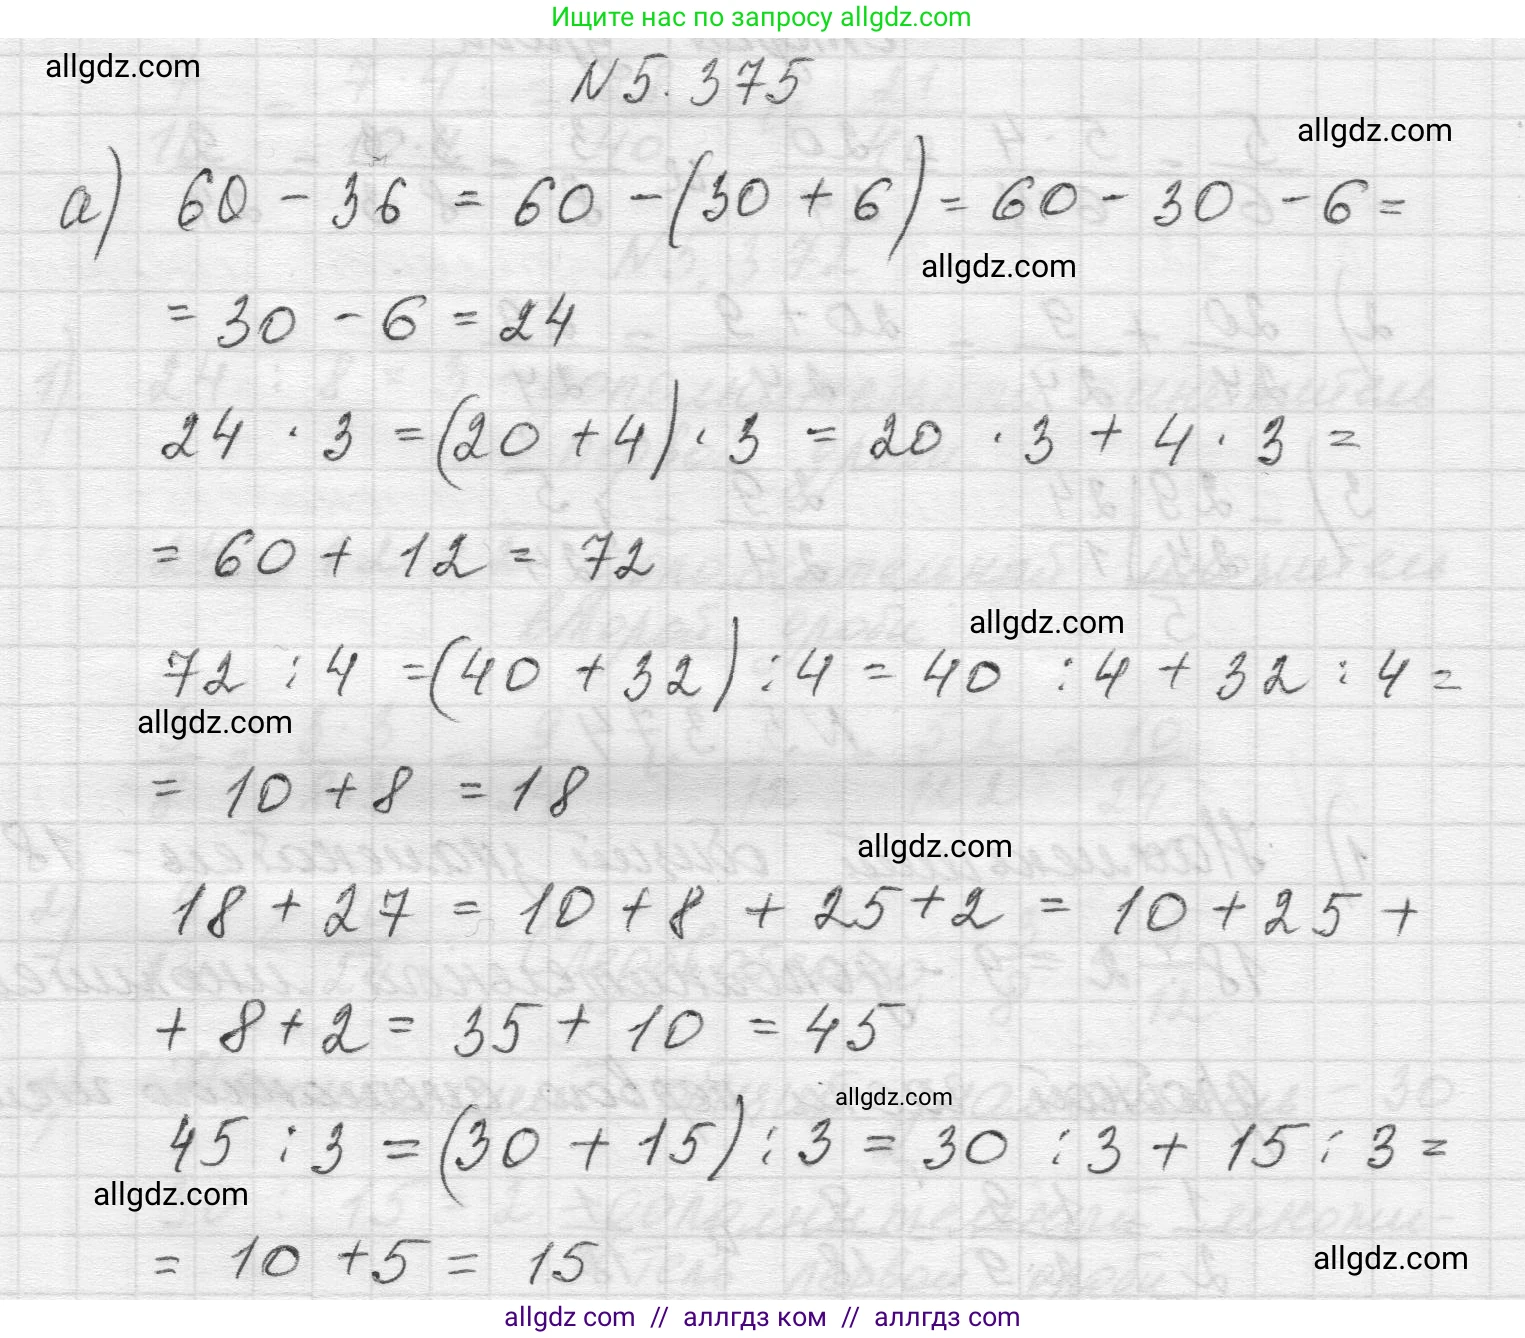 Ищите нас по запросу allgdz.com
allgdz.com
N 5.375
allgdz.com
а) 60 - 36 = 60 - (30 + 6) = 60 - 30 - 6 =
allgdz.com
= 30 - 6 = 24
24 · 3 = (20 + 4) · 3 = 20 · 3 + 4 · 3 =
= 60 + 12 = 72
allgdz.com
72 : 4 = (40 + 32) : 4 = 40 : 4 + 32 : 4 =
allgdz.com
= 10 + 8 = 18
allgdz.com
18 + 27 = 10 + 8 + 25 + 2 = 10 + 25 +
+ 8 + 2 = 35 + 10 = 45
allgdz.com
45 : 3 = (30 + 15) : 3 = 30 : 3 + 15 : 3 =
allgdz.com
= 10 + 5 = 15
allgdz.com
allgdz com // аллгдз ком // аллгдз com